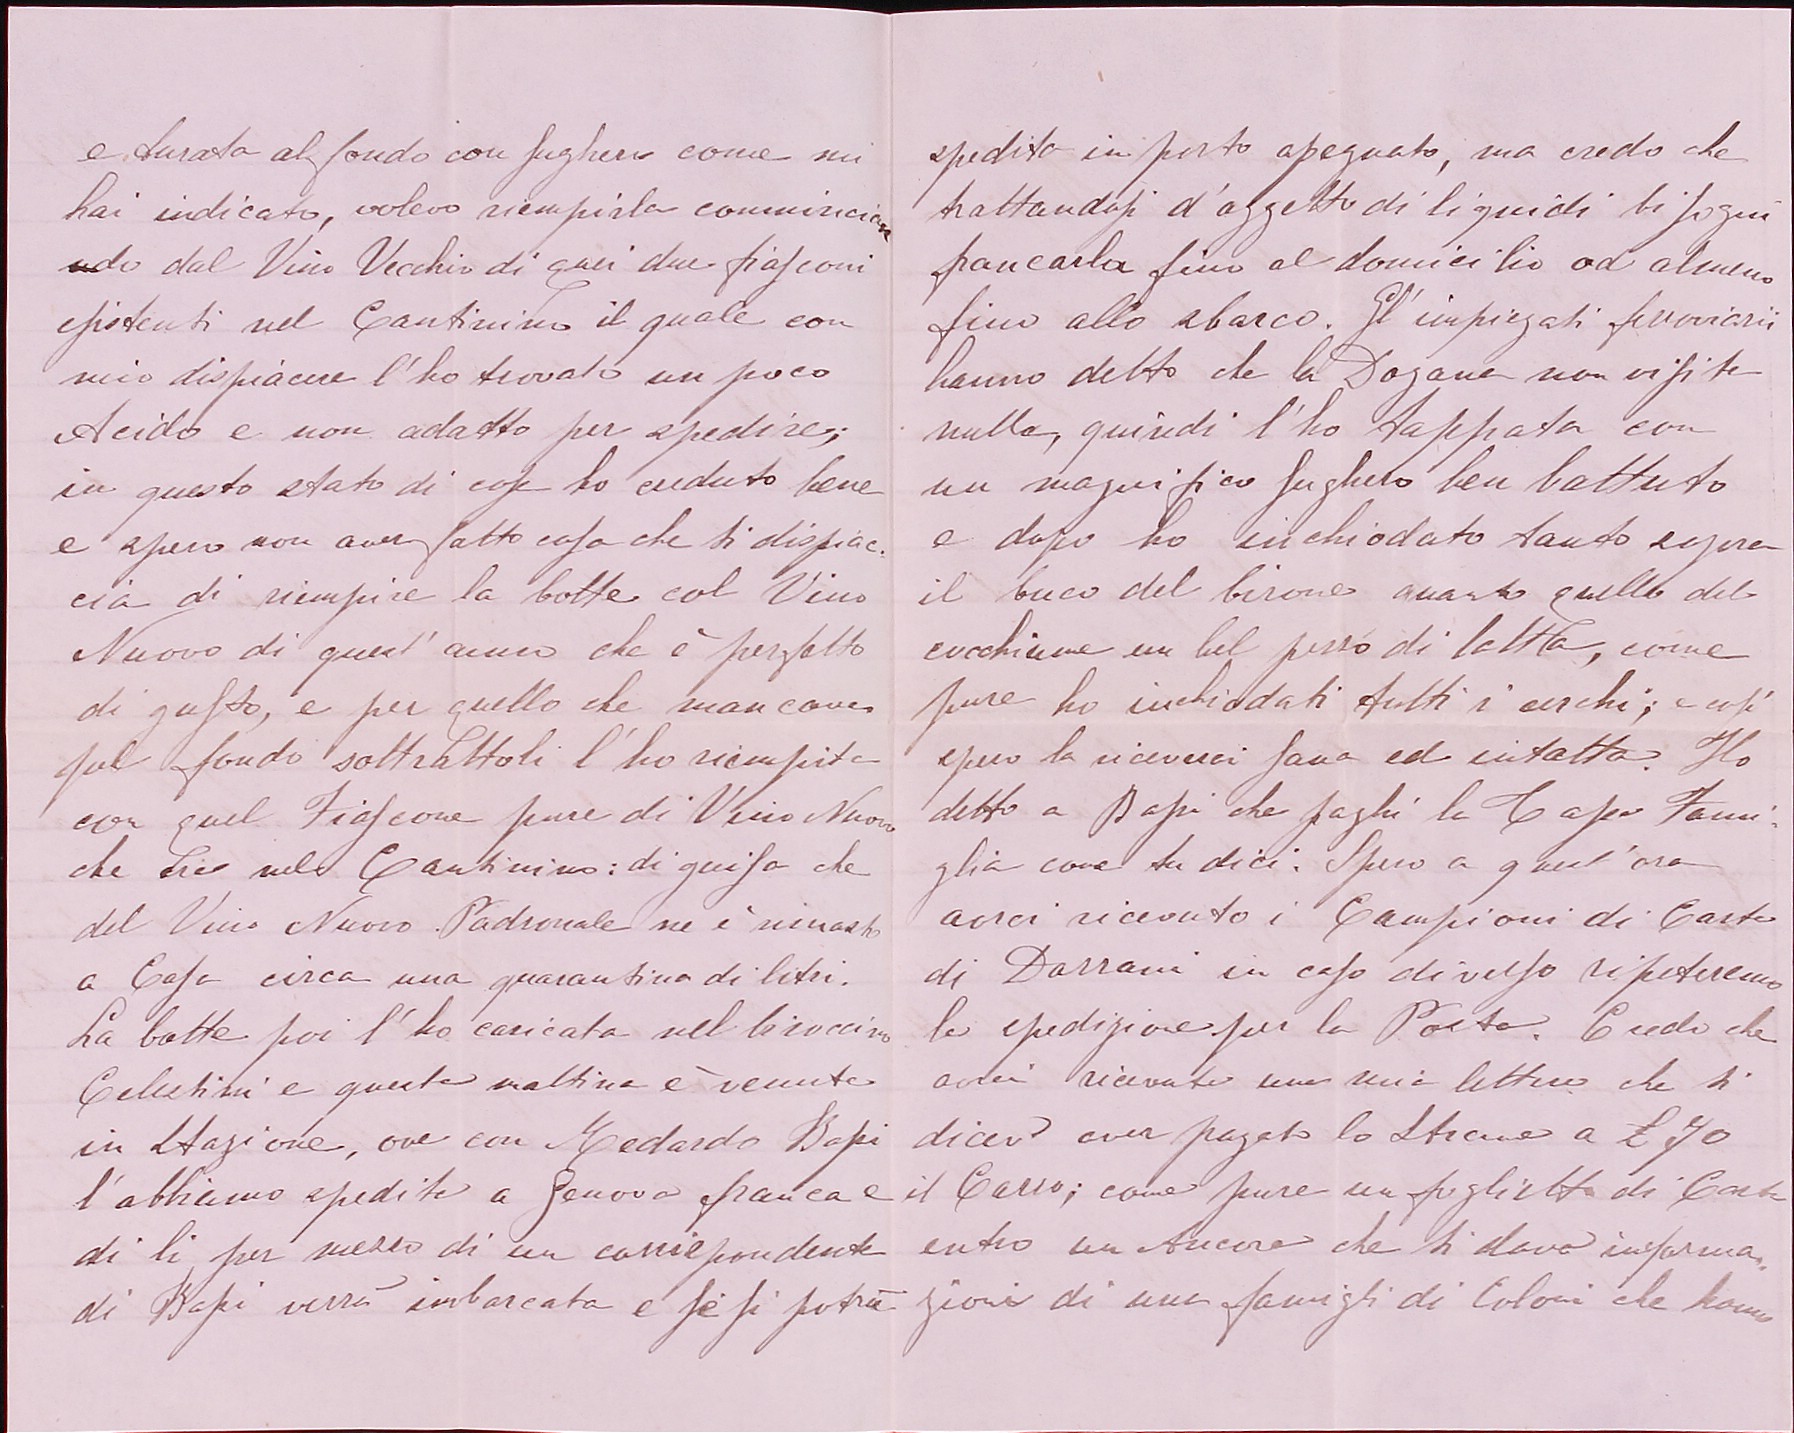 e turata al fondo con sughero come mi
hai indicato, volevo riempirla comminician
do dal Vino Vecchio di quei due fiasconi
esistenti nel Cantinino il quale con
mio dispiacere l'ho trovato un poco
Acido e non adatto per spedire;
in questo stato di cose ho creduto bene
e spero non aver fatto cosa che ti dispiac-
cia di riempire la botte col Vino
Nuovo di quest'anno che è perfetto
di gusto, e per quello che mancava
sul fondo sottrattoli l'ho riempita
con quel Fiascone pure di Vino Nuovo
che era nel Cantinino: di guisa che
del Vino Nuovo Padronale ne è rimasto
a Casa circa una quarantina di litri.
La botte poi l'ho caricata nel biroccino
Celestini e questa mattina è venuta
in Stazione, ove con Medardo Bapi
l'abbiamo spedita a Genova franca e
di li per mezzo di un corrispondente
di Bapi verrà imbarcata e se si potrà
spedita in porto assegnato, ma credo che
trattandosi d'oggetto di liquidi bisogni
francarla fino al domicilio od almeno
fino allo sbarco. Gl'impiegati ferroviarii
hanno detto che la Dogana non visita
nulla, quindi l'ho tappata con
un magnifico sughero ben battuto
e dopo ho inchiodato tanto sopra
il buco del birone quanto quello del
cocchiume un bel pezzo di latta, come
pure ho inchiodati tutti i cerchi; e così
spero la riceverai sana ed intatta. Ho
detto a Bapi che paghi la Tassa Fami-
glia come tu dici. Spero a quest'ora
avrai ricevuto i Campioni di Carta
di in caso diverso ripeteremo
la spedizione per la Posta. Credo che
avrai ricevuta una mia lettera che ti
dicevo aver pagato lo Strame a £ 70
il Carro; come pure un foglietto di Carta
entro un Ancora che ti dava informa-
zioni di una famigli di Coloni che hanno